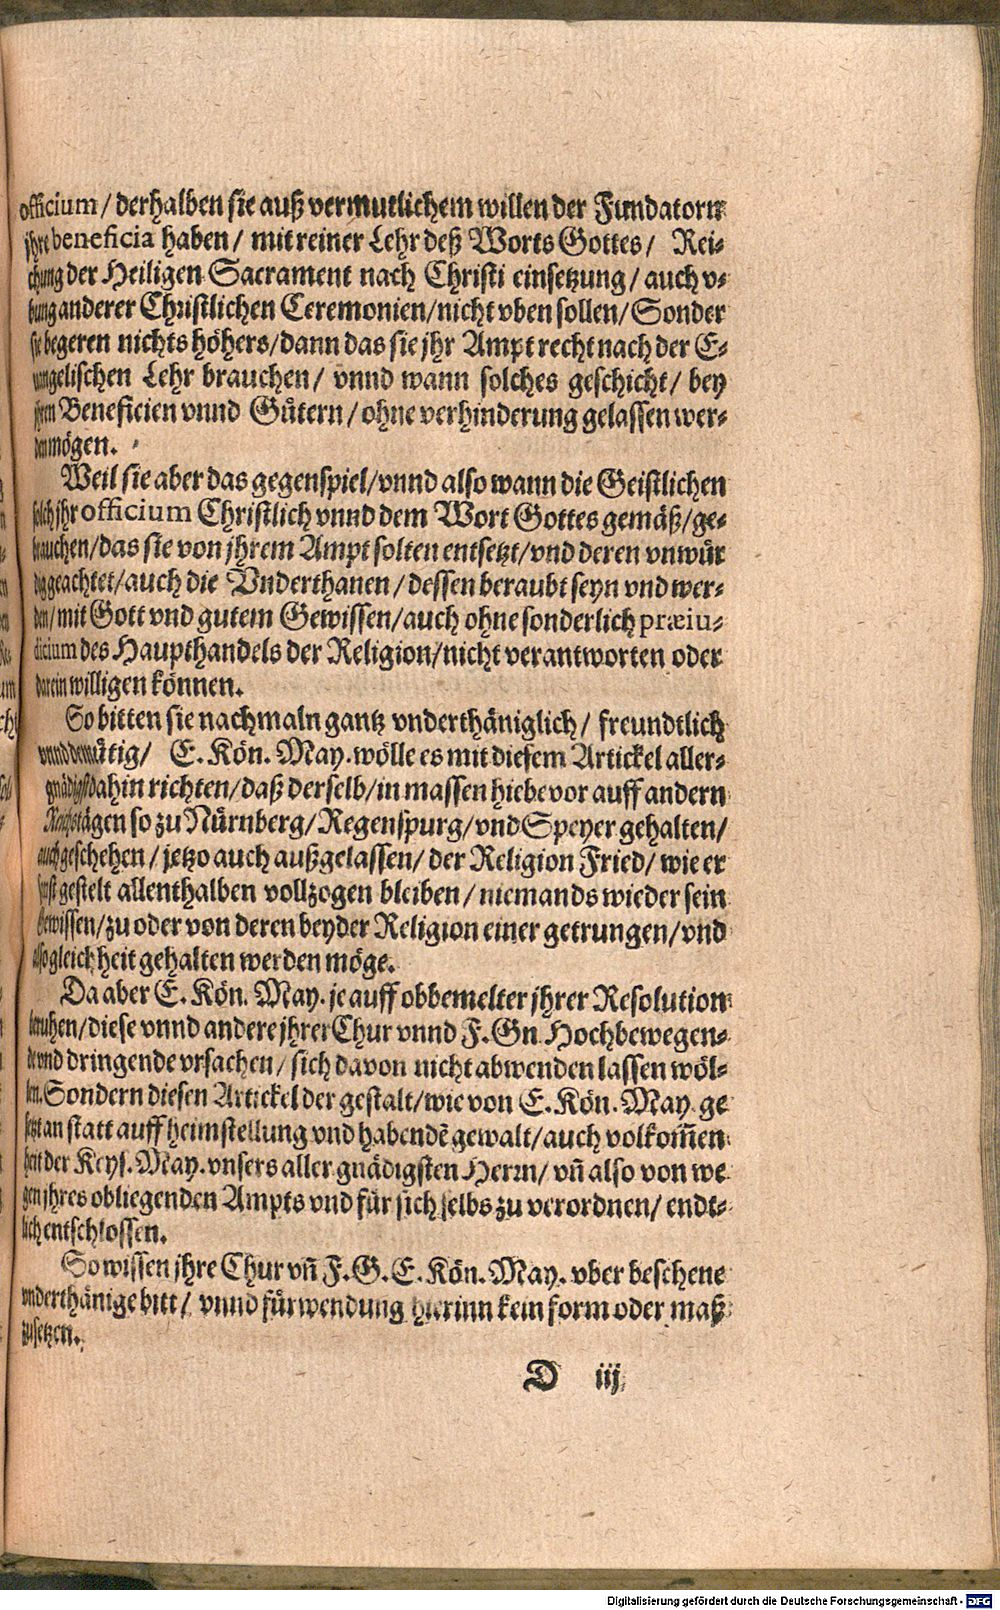 officium / derhalben sie auß vermutlichem willen der Fundatorn
jhre beneficia haben / mit reiner Lehr deß Worts Gottes / Rei-
chung der Heiligen Sacrament nach Christi einsetzung / auch v-
bung anderer Christlichen Ceremonien / nicht vben sollen / Sonder
sie begeren nichts höhers / dann das sie jhr Ampt recht nach der E-
uangelischen Lehr brauchen / vnnd wann solches geschicht / bey
jhren Beneficien vnnd Gütern / ohne verhinderung gelassen wer-
den mögen.
Weil sie aber das gegenspiel / vnnd also wann die Geistlichen
solch jhr officium Christlich vnnd dem Wort Gottes gemäß / ge-
brauchen / das sie von jhrem Ampt solten entsetzt / vnd deren vnwür
dig geachtet / auch die Vnderthanen / dessen beraubt seyn vnd wer-
den / mit Gott vnd gutem Gewissen / auch ohne sonderlich præiu-
dicium des Haupthandels der Religion / nicht verantworten oder
darein willigen können.
So bitten sie nachmaln gantz vnderthäniglich / freundtlich
vnnd demütig / E. Kön. May. wölle es mit diesem Artickel aller-
gnädigst dahin richten / daß derselb / in massen hiebevor auff andern
Reichstägen so zu Nürnberg / Regenspurg / vnd Speyer gehalten /
auch geschehen / jetzo auch außgelassen / der Religion Fried / wie er
sonst gestelt allenthalben vollzogen bleiben / niemands wieder sein
Gewissen / zu oder von deren beyder Religion einer getrungen / vnd
also gleichheit gehalten werden möge.
Da aber E. Kön. May. je auff obbemelter jhrer Resolution
beruhen / diese vnnd andere jhrer Chur vnnd F. Gn. Hochbewegen-
de vnd dringende vrsachen / sich davon nicht abwenden lassen wöl-
len. Sondern diesen Artickel der gestalt / wie von E. Kön. May. ge
setzt an statt auff heimstellung vnd habendẽ gewalt / auch volkom̃en
heit der Keys. May. vnsers aller gnädigsten Herrn / vñ also von we
gen jhres obliegenden Ampts vnd für sich selbs zu verordnen / endt-
lich entschlossen.
So wissen jhre Chur vñ F. G. E. Kön. May. vber beschene
vnderthänige bitt / vnnd fürwendung hierinn kein form oder maß
zusetzen.
D iij
Digitalisierung gefördert durch die Deutsche Forschungsgemeinschaft - DFG